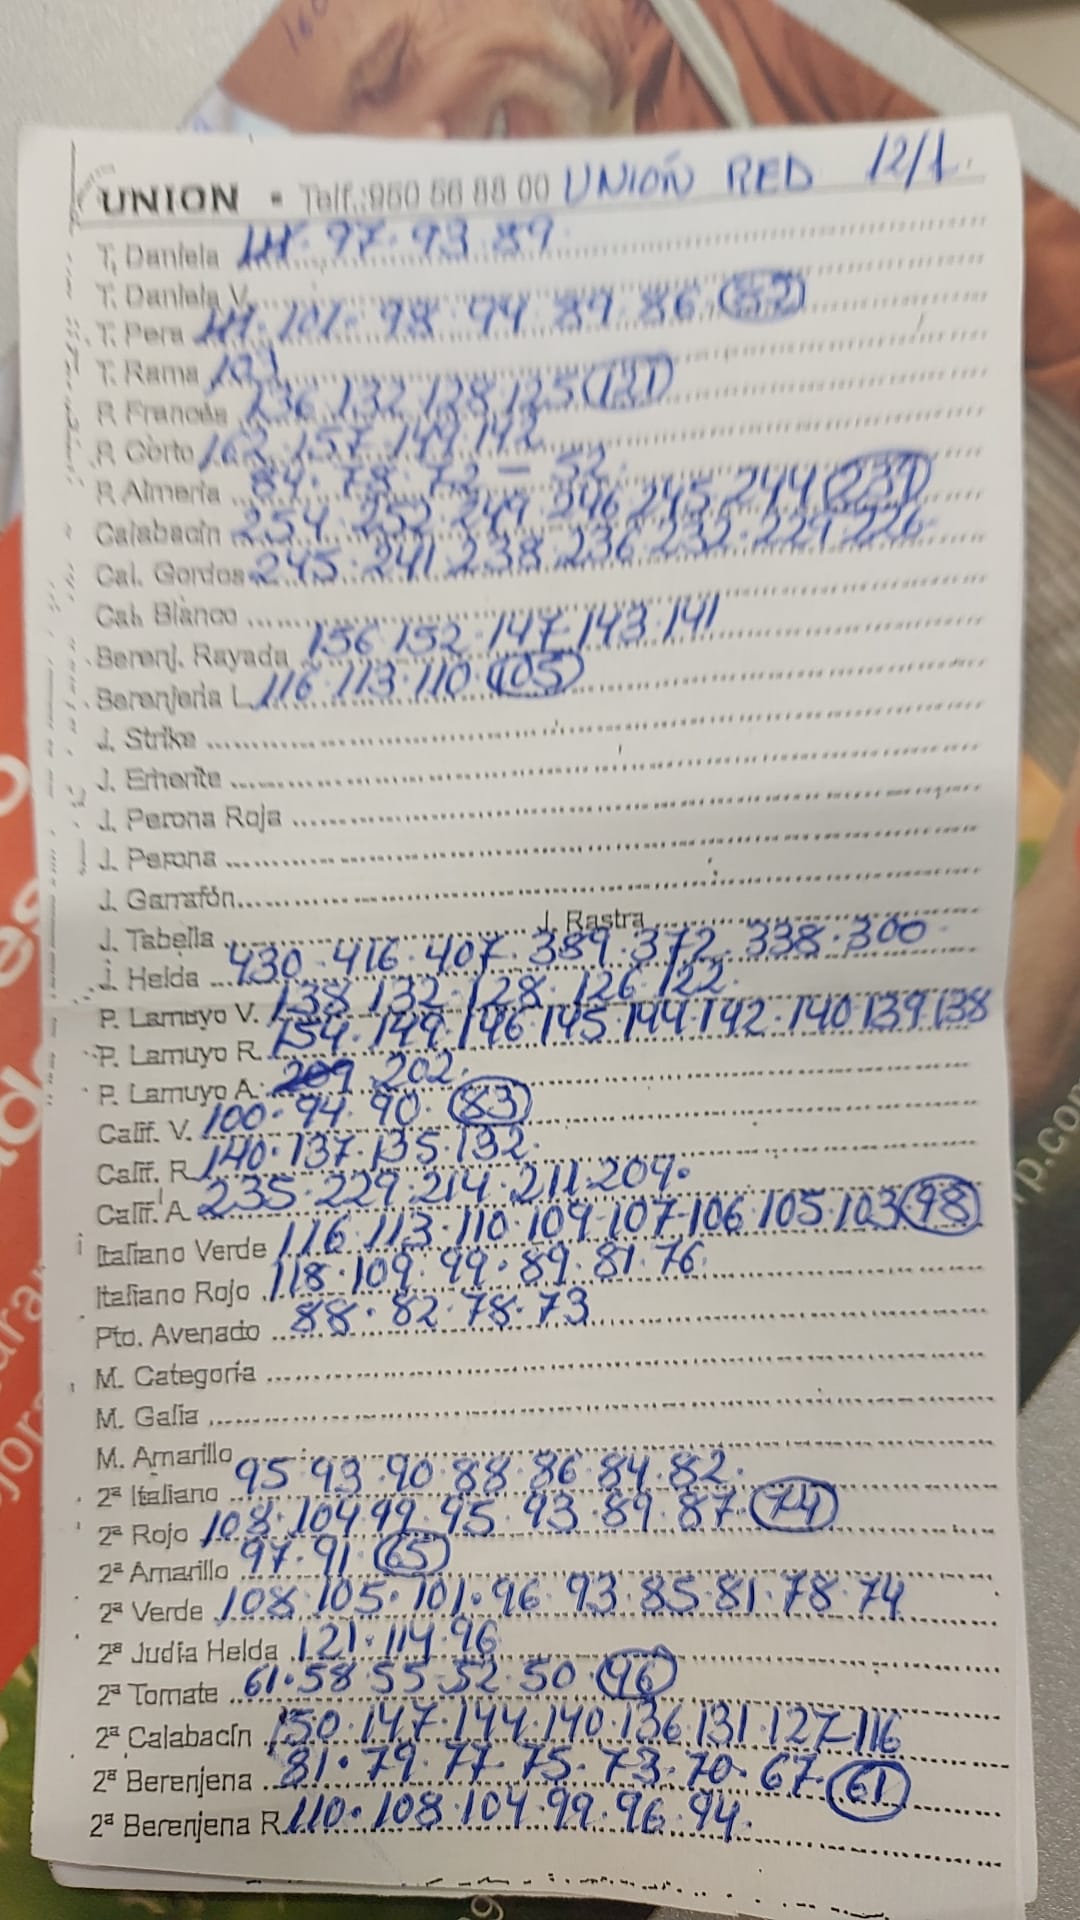 UNION • Telf.:950 56 88 00 UNIÓN RED 12/1
T. Daniela 97. 93. 89
T. Daniela V.
T. Pera 101. 98. 94. 89. 86. 82
T. Rama 103
P. Francés 136. 132. 128. 125. 121
P. Corto 162. 157. 149. 142
P. Almería 84. 78. 72 — 52.
Calabacín 254. 252. 249. 246. 245. 244
Cal. Gordos 245. 241. 238. 236. 232. 229. 226
Cal. Blanco
Berenj. Rayada 156. 152. 147. 143. 141
Berenjena L. 116. 113. 110. 105
J. Strike
J. Emerite
J. Perona Roja
J. Perona
J. Garrafón
J. Tabella J. Rastra
J. Helda 430. 416. 407. 389. 372. 338. 300
P. Lamuyo V. 138. 132. 128. 126. 122.
P. Lamuyo R. 154. 149. 146. 145. 144. 142. 140. 139. 138
P. Lamuyo A. 209. 202.
Calif. V. 100. 94. 90. 83
Calif. R. 140. 137. 135. 132.
Calif. A. 235. 229. 214. 211. 209.
Italiano Verde 116. 113. 110. 109. 107. 106. 105. 103. 98
Italiano Rojo 118. 109. 99. 89. 81. 76.
Pto. Avenado 88. 82. 78. 73
M. Categoría
M. Galia
M. Amarillo
2ª Italiano 95. 93. 90. 88. 86. 84. 82.
2ª Rojo 108. 104. 99. 95. 93. 89. 87. 74
2ª Amarillo 97. 91. 65
2ª Verde 108. 105. 101. 96. 93. 85. 81. 78. 74
2ª Judía Helda 121. 114. 96
2ª Tomate 61. 58. 55. 52. 50
2ª Calabacín 150. 147. 144. 140. 136. 131. 127. 116
2ª Berenjena 81. 79. 77. 75. 73. 70. 67. 61
2ª Berenjena R. 110. 108. 104. 99. 96. 94.